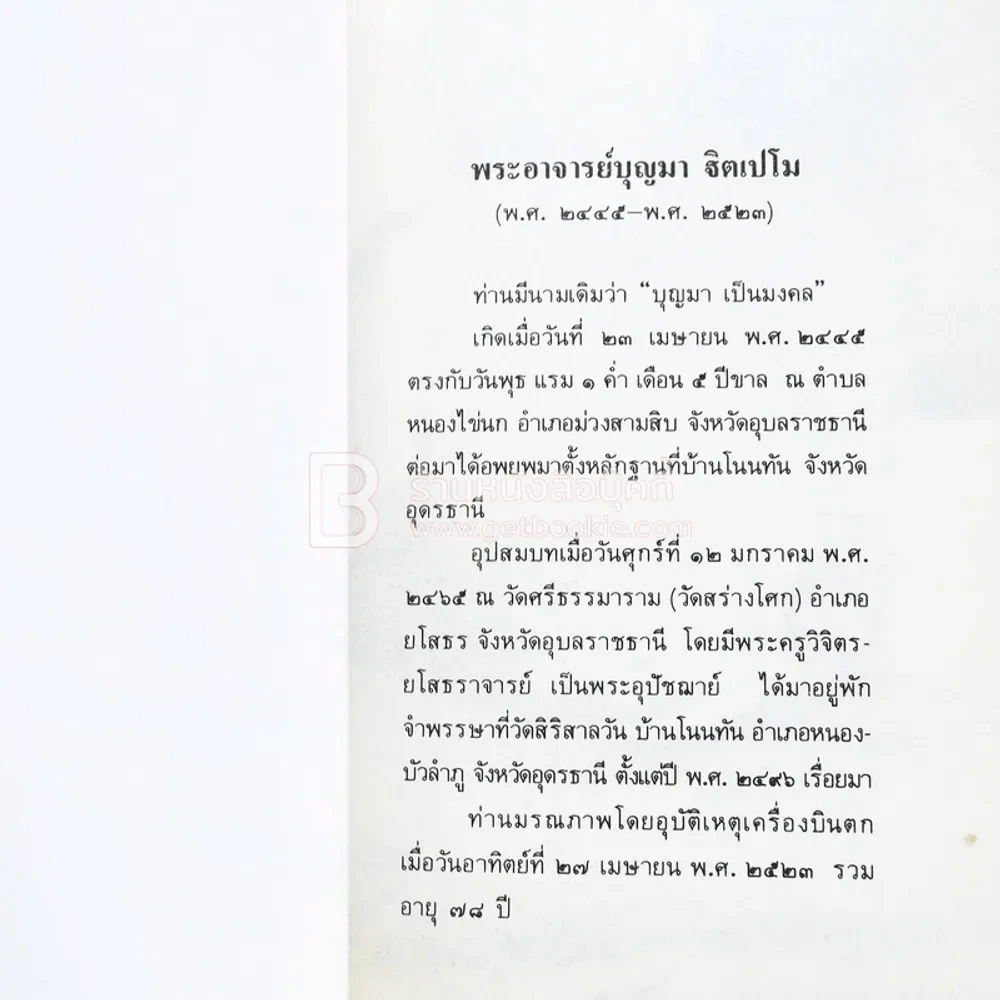 พระอาจารย์บุญมา ฐิตเปโม
(พ.ศ. ๒๔๔๕–พ.ศ. ๒๕๒๓)
ท่านมีนามเดิมว่า “บุญมา เป็นมงคล”
เกิดเมื่อวันที่ ๒๓ เมษายน พ.ศ. ๒๔๔๕
ตรงกับวันพุธ แรม ๑ ค่ำ เดือน ๕ ปีขาล ณ ตำบล
หนองไข่นก อำเภอม่วงสามสิบ จังหวัดอุบลราชธานี
ต่อมาได้อพยพมาตั้งหลักฐานที่บ้านโนนทัน จังหวัด
ร้านหนังสือบุ๊คกี้
อุดรธานี
www.getbookie.com
อุปสมบทเมื่อวันศุกร์ที่ ๑๒ มกราคม พ.ศ.
๒๔๖๕ ณ วัดศรีธรรมาราม (วัดสร่างโศก) อำเภอ
ยโสธร จังหวัดอุบลราชธานี โดยมีพระครูวิจิตร-
ยโสธราจารย์ เป็นพระอุปัชฌาย์ ได้มาอยู่พัก
จำพรรษาที่วัดสิริสาลวัน บ้านโนนทัน อำเภอหนอง-
บัวลำภู จังหวัดอุดรธานี ตั้งแต่ปี พ.ศ. ๒๔๙๖ เรื่อยมา
ท่านมรณภาพโดยอุบัติเหตุเครื่องบินตก
เมื่อวันอาทิตย์ที่ ๒๗ เมษายน พ.ศ. ๒๕๒๓ รวม
อายุ ๗๘ ปี